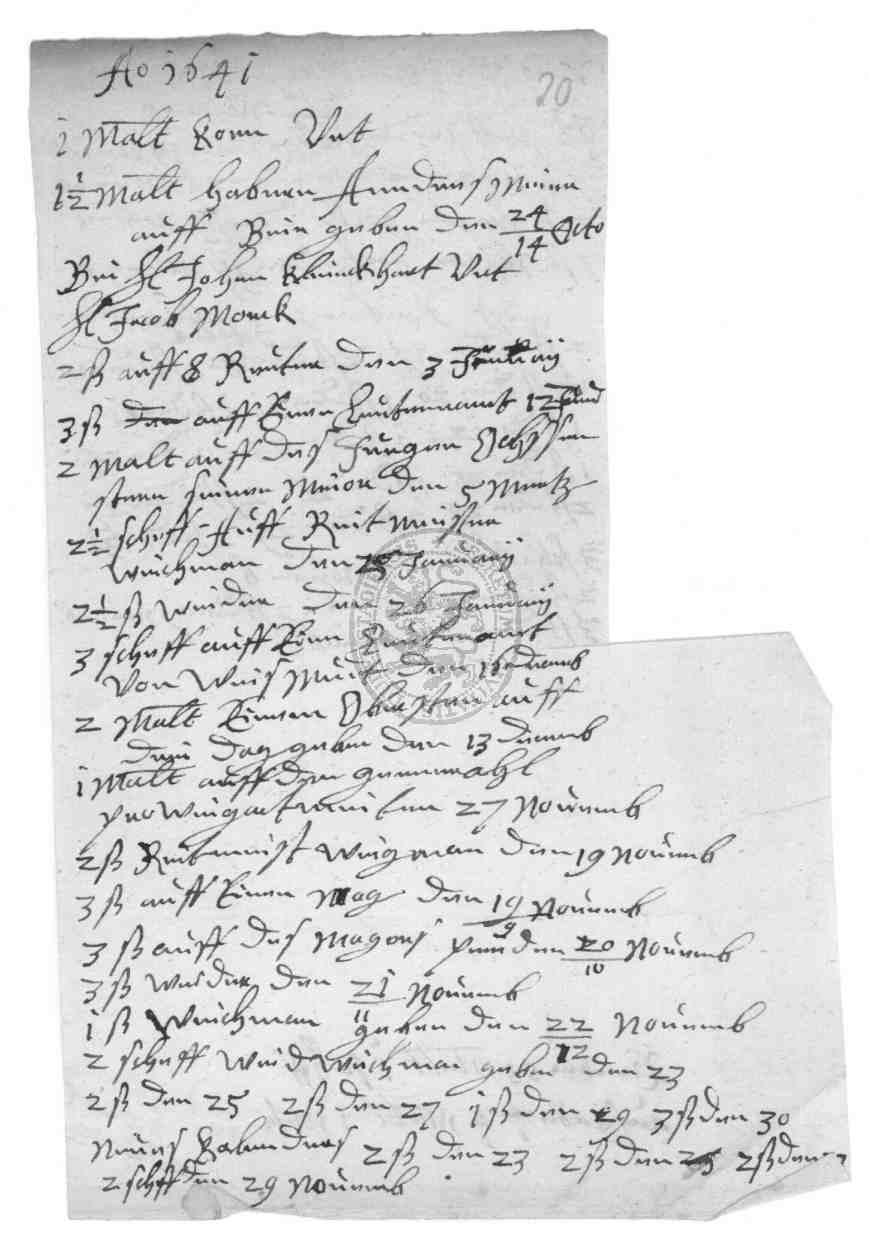 Ao 1641
20
1 Malt Korn Vnt
1 1/2 Malt habern Andreas Meier
auff Beir geben den 24/14 Octo
Bei H Johan Klinckhart Vnt
H Jacob Monck
2 ß auff 8 Reuter den 3 Januarij
3 ß auff Einen Leutenamt 12
2 Malt auff des Jungen Ochssen
steen seinen Meior den 5 Mertz
2 1/2 scheff Auff Reitmeister
Weichman den 25 Januarij
2 1/2 ß weider den 26 Januarij
3 scheff auff Einen Leutenamt
Von Weis den 16 decemb
2 Malt Einen Obersten auff
drei dag geben den 13 decemb
1 Malt auff den generahl
den 27 Novemb
2 ß Reitmeist Weigman den 19 Novemb
3 ß auff Einen Mag den 19/9 Novemb
3 ß auff des Magors den 20/10 Novemb
3 ß weider den 21/11 Novemb
1 ß Weichman geben den 22/12 Novemb
2 scheff Weichman geben den 23
2 ß den 25 2 ß den 27 1 ß den 29 3 ß den 30
Neues Kalenders 2 ß den 23 2 ß den 25 2 ß den
2 scheff den 29 Novemb